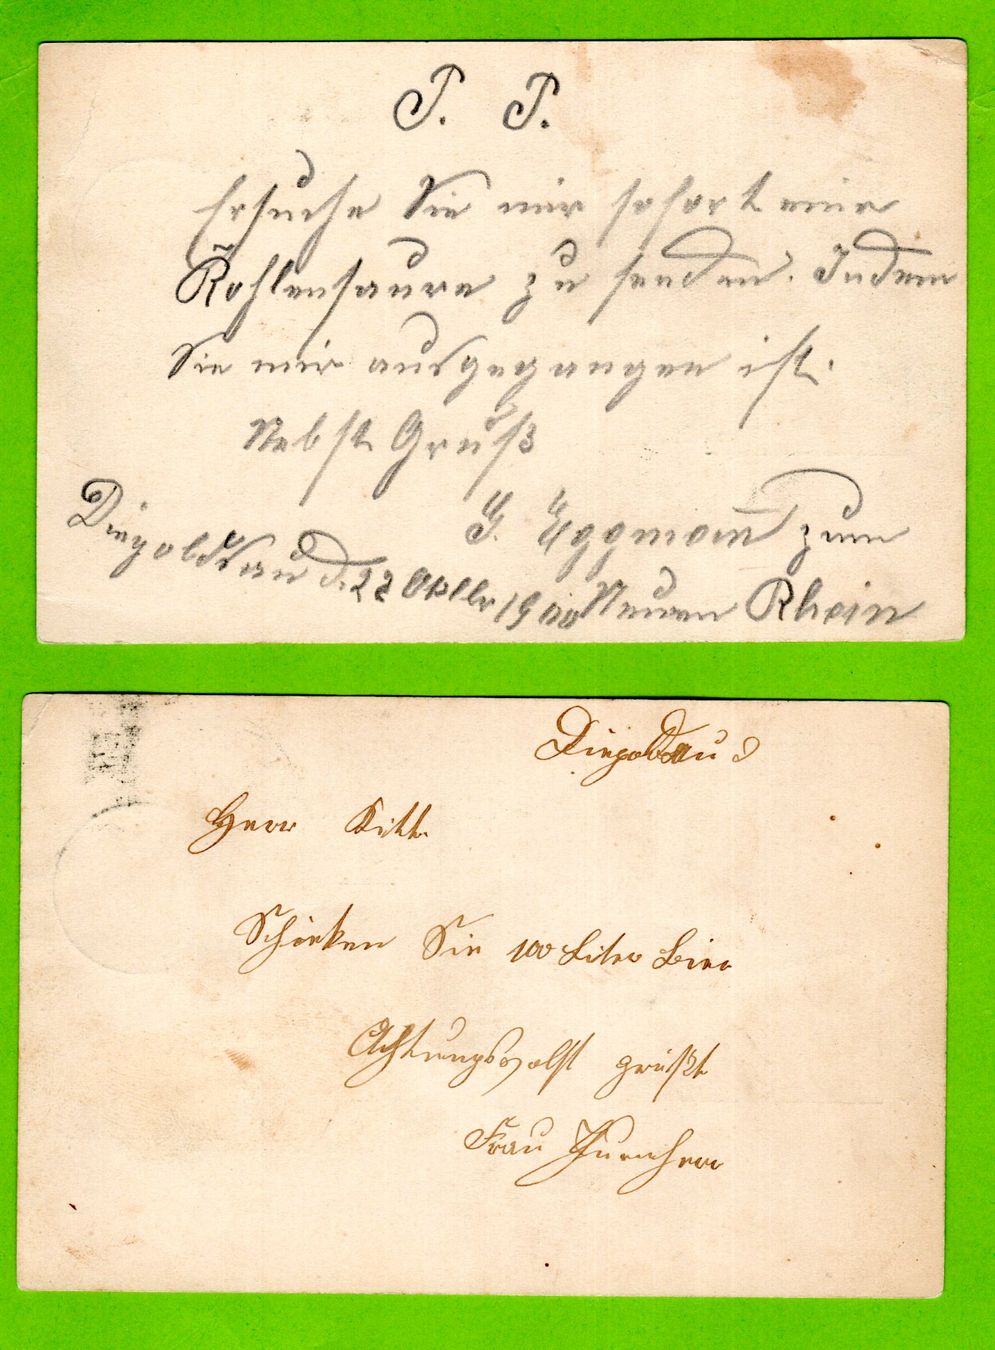 P. P.
Ersuche Sie mir sofort eine
Kohlensaure zu senden. Indem
Sie mir ausgegangen ist.
Nebst Gruß
J. Eggmann zum
Diepoldsau d. 22 Oktbr 1900 Neuen Rhein
Diepoldsau d
Herr
Schicken Sie 100 Liter Bier
Achtungsvolst grüßt
Frau